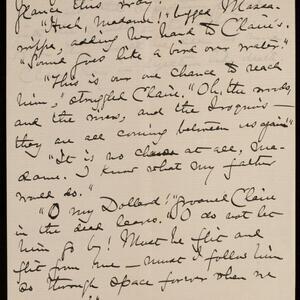 glance this way!"
"Hush, madame!" begged Massa-
wippa, adding her hand to Claire's.
"Sound goes like a bird over water."
"This is our one chance to reach
him," struggled Claire. "Oh, the woods,
and the river, and the Iroquois —
they are all coming between us again!"
"It is no chance at all, ma-
dame. I know what my father
would do."
"O my Dollard!" groaned Claire
in the dead leaves. "O do not let
him go by! Must he flit and
flit from me — must I follow him
so through space forever when we